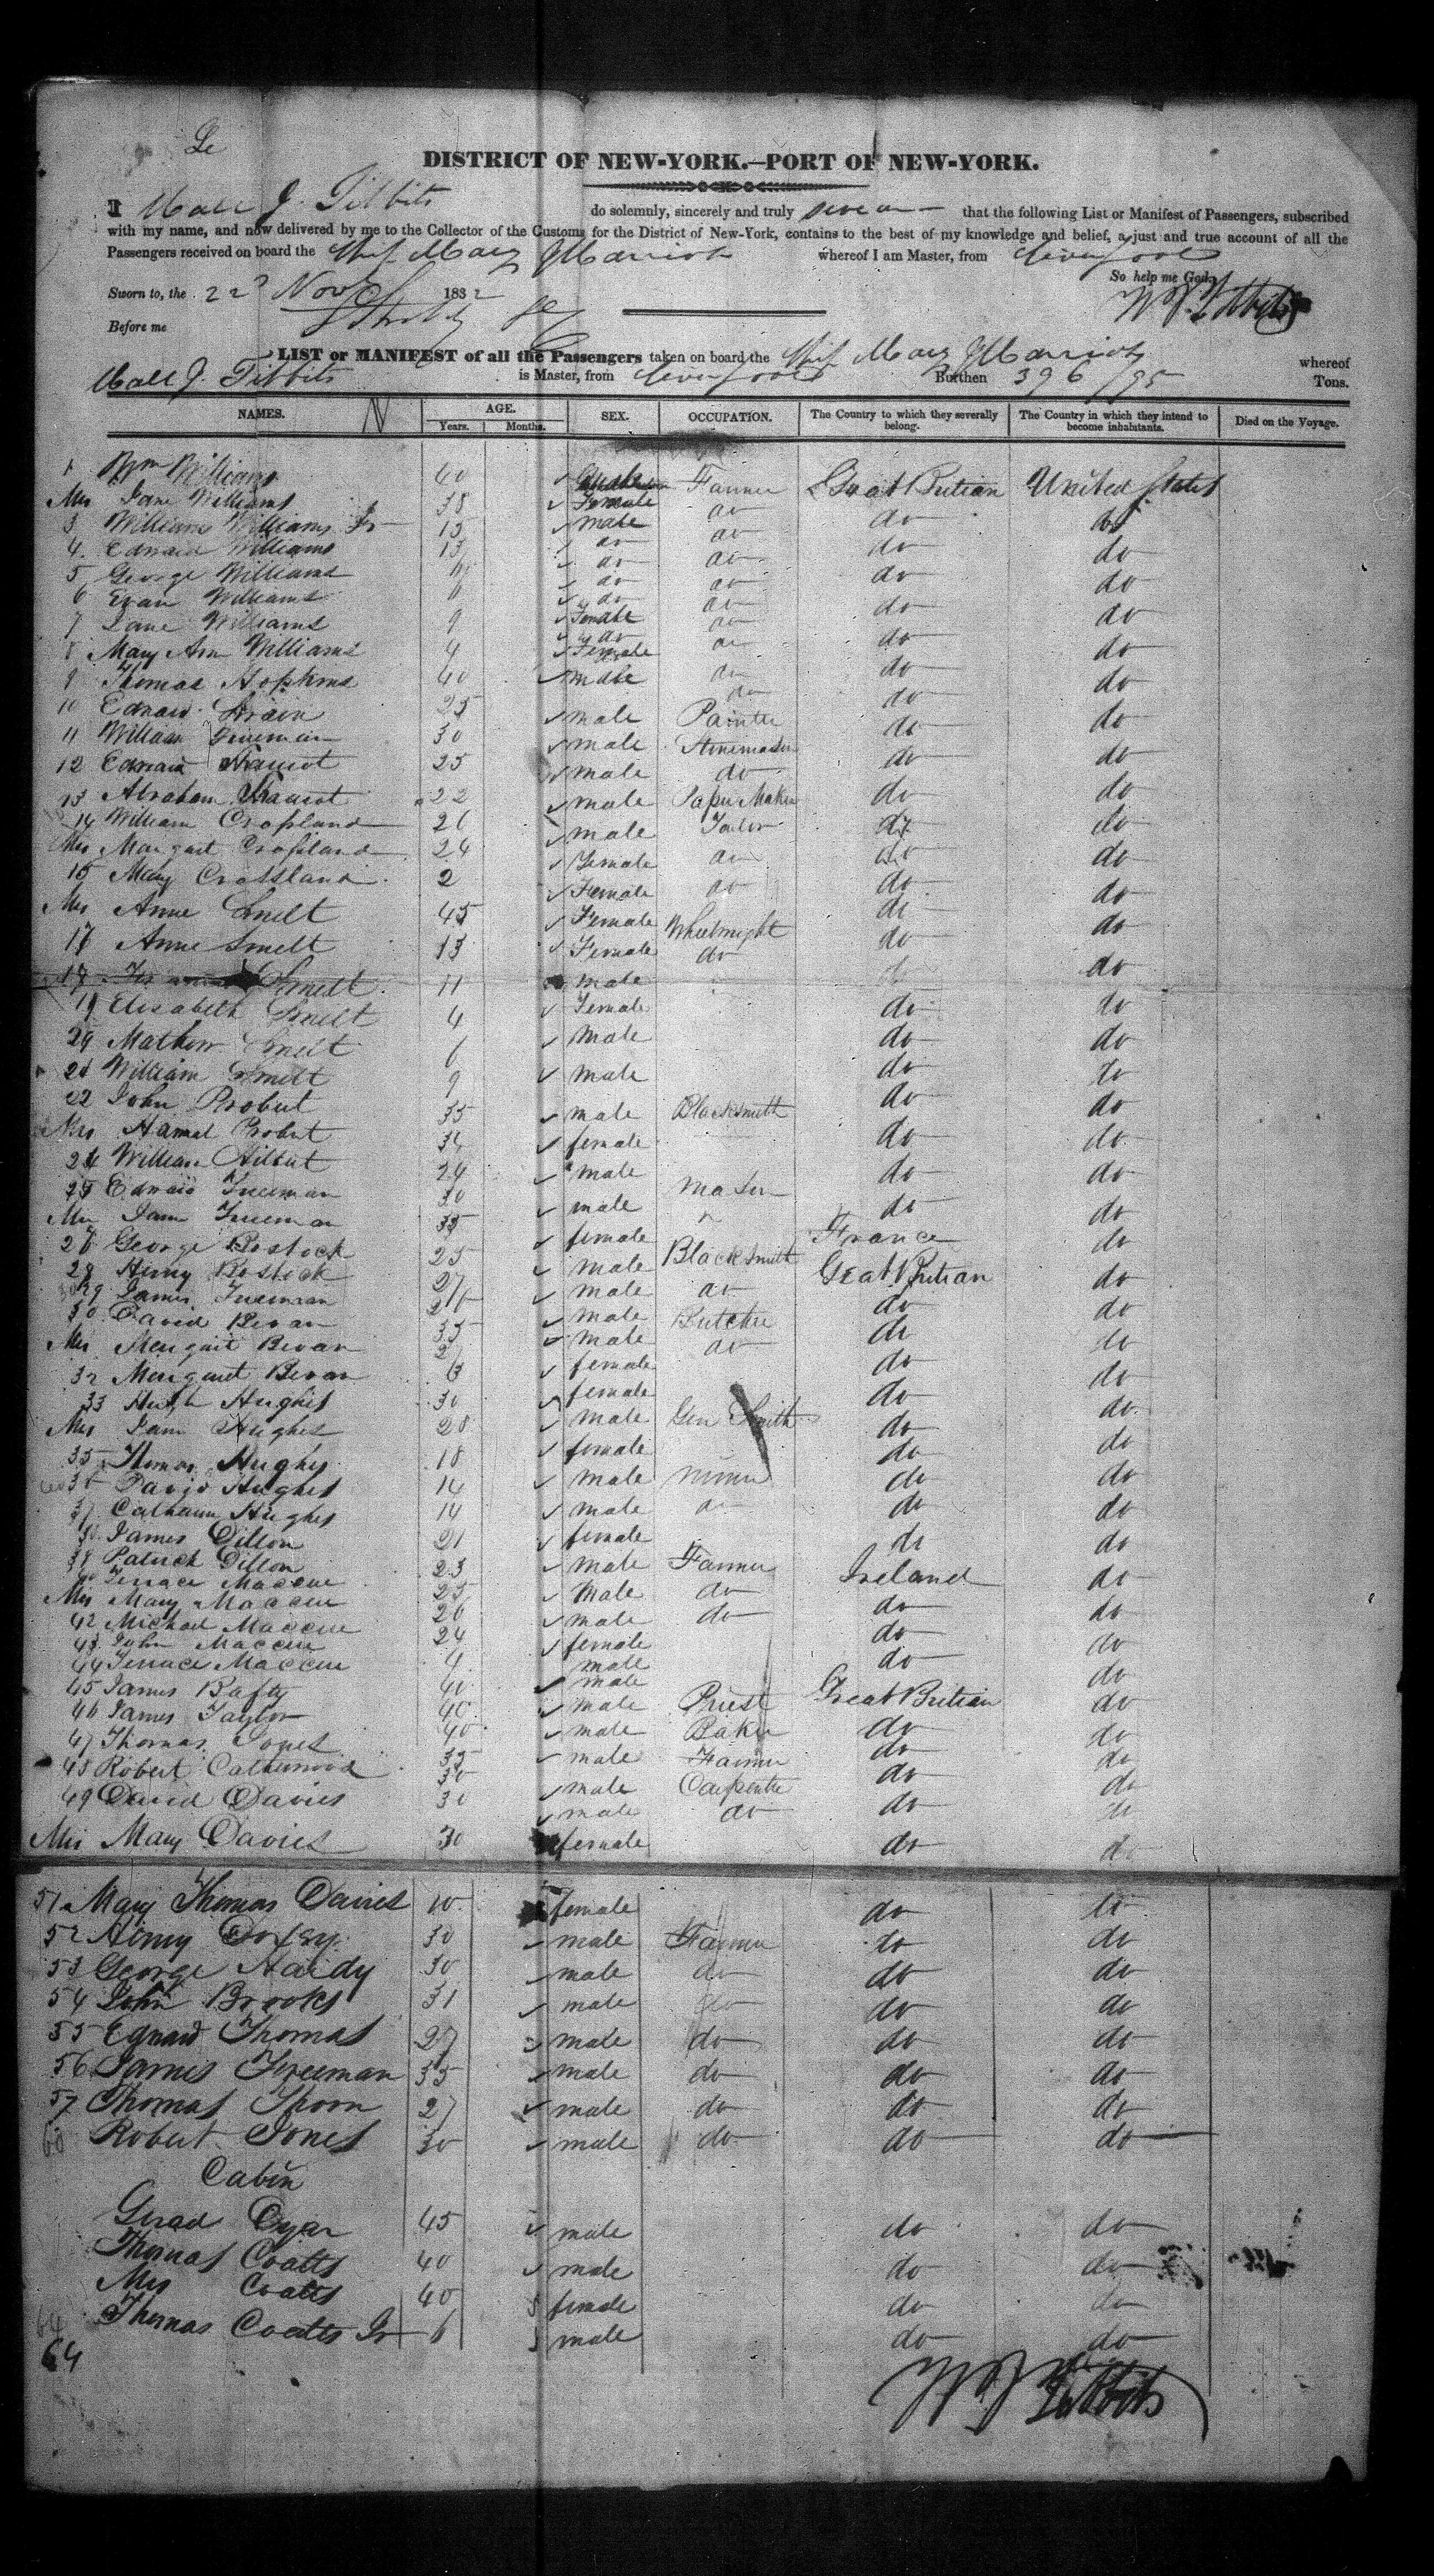 DISTRICT OF NEW-YORK.—PORT OF NEW-YORK.
I Hall J. Tibbits do solemnly, sincerely and truly swear that the following List or Manifest of Passengers, subscribed
with my name, and now delivered by me to the Collector of the Customs for the District of New-York, contains to the best of my knowledge and belief, a just and true account of all the
Passengers received on board the Ship Mary & Harriot whereof I am Master, from Liverpool
So help me God,
Sworn to, the 22 Nov 1832
Before me
LIST or MANIFEST of all the Passengers taken on board the Ship Mary & Harriot whereof
Hall J. Tibbits is Master, from Liverpool Burthen 396/95 Tons.
NAMES. AGE. Years. Months. SEX. OCCUPATION. The Country to which they severally belong. The Country in which they intend to become inhabitants. Died on the Voyage.
1 Wm Williams 40 male Farmer Great Britian United States
Mrs Jane Williams 38 Female do do do
3 Williams Williams Jr 15 male do do do
4 Edward Williams 13 do do do do
5 George Williams do do do do
6 Evan Williams 6 do do do do
7 Jane Williams 9 Female do do do
8 Mary Ann Williams 4 Female do do do
9 Thomas Hopkins 40 male do do do
10 Edward 25 male Painter do do
11 William Freeman 30 male Stonemason do do
12 Edward 25 male do do do
13 Abraham 22 male Paper Maker do do
14 William Cropland 26 male Tailor do do
Mrs Margaret Cropland 24 Female do do do
15 Mary Crossland 2 Female do do do
Mrs Anne Smelt 45 Female Wheelwright do do
17 Anne Smelt 13 Female do do do
18 Smelt 11 male do
19 Elisabeth Smelt 4 Female do do
20 Mathew Smelt 6 male do do
21 William Smelt 9 male do do
22 John Probert 35 male Blacksmith do do
Mrs Hannah Probert 34 female do do
24 William 24 male do do
25 Edward Freeman 30 male Mason do do
Mrs Jane Freeman 35 female France do
28 George Bostock 25 male Blacksmith Great Britian do
28 Henry Bostock 27 male do do do
29 James Freeman 26 male Butcher do do
30 David Bevan 35 male do do do
Mrs Margaret Bevan female do do
32 Margaret Bevan 6 female do do
33 Hugh Hughes 30 male Gun Smith do do
Mrs Jane Hughes 28 female do do
35 Thomas Hughes 18 male Miner do do
36 David Hughes 14 male do do do
37 Catherine Hughes 14 female do do
38 James Dillon 21 male Farmer Ireland do
39 Patrick Dillon 23 male do do do
40 Terrace Maccue 25 male do do do
Mrs Mary Maccue 26 female do do
42 Michael Maccue 24 male
43 John Maccue 4 male
44 Terrace Maccue
45 James Rafty 40 male Priest Great Britian do
46 James Taylor 40 male Baker do do
47 Thomas Jones 40 male Farmer do do
48 Robert Catherwood 35 male Carpenter do do
49 David Davies 30 male do do do
Mrs Mary Davies 30 female do do
51 Mary Thomas Davies 10 female do do
52 Henry 30 male Farmer do do
53 George Hardy 30 male do do do
54 John Brooks 31 male do do do
55 Edward Thomas 27 male do do do
56 James Freeman 35 male do do do
57 Thomas Thorn 27 male do do do
60 Robert Jones 30 male do do do
Cabin
Gerad Dyar 45 male do do
Thomas Coatts 40 male do do
Mrs Coatts 40 female do do
64 Thomas Coatts Jr 6 male do do
64